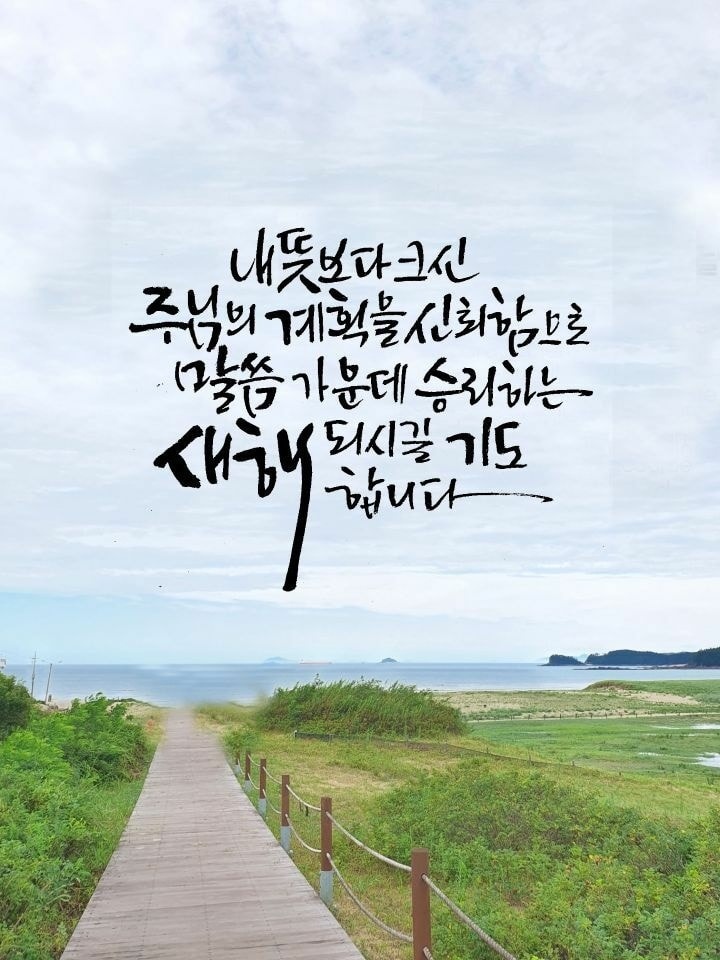 내 뜻보다 크신
주님의 계획을 신뢰함으로
말씀 가운데 승리하는
새해 되시길 기도
합니다